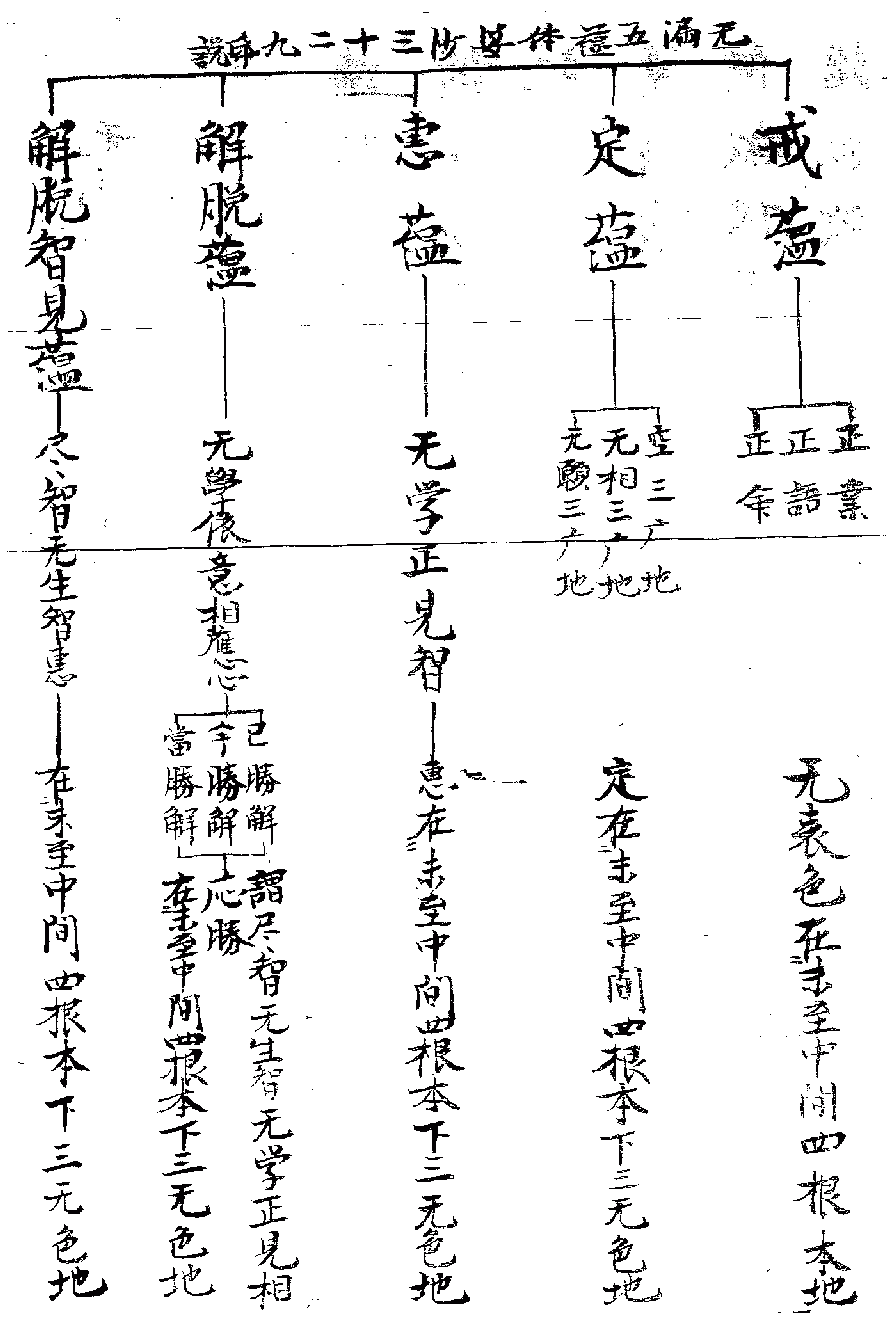 无漏五蕴体婆沙三十二九右説
戒蕴
正業
正語
正命
无表色在未至中间四根本地
定蕴
空三广地
无相三广地
无願三广地
定在未至中间四根本下三无色地
恵蕴
无学正見智
恵在未至中间四根本下三无色地
解脱蕴
无學作意相應心
已勝解
今勝解
當勝解
謂尽智无生智无学正見相
応勝
在未至中间四根本下三无色地
解脱智見蕴
尽智无生智恵
在未至中间四根本下三无色地